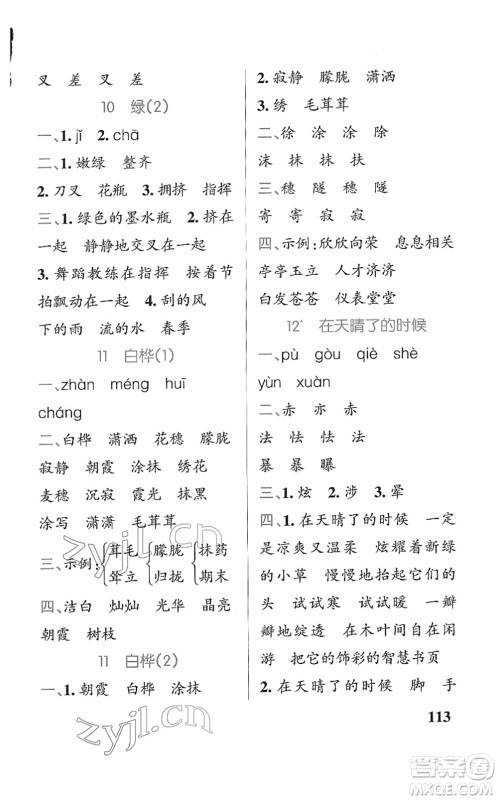 叉 差 叉 差
10 绿(2)
一、1.jǐ 2.chā
二、1.嫩绿 整齐
2.刀叉 花瓶 3.拥挤 指挥
三、1.绿色的墨水瓶 2.挤在
一起 静静地交叉在一起
3.舞蹈教练在指挥 按着节
拍飘动在一起 4.刮的风
下的雨 流的水 春季
11 白桦(1)
一、zhàn méng huī
cháng
二、白桦 潇洒 花穗 朦胧
寂静 朝霞 涂抹 绣花
麦穗 沉寂 霞光 抹黑
涂写 潇潇 毛茸茸
三、示例:{茸毛 {朦胧 {抹药
耸立 归拢 期末
四、洁白 灿灿 光华 晶亮
朝霞 树枝
11 白桦(2)
一、1.朝霞 白桦 涂抹
2.寂静 朦胧 潇洒
3.绣 毛茸茸
二、徐 涂 涂 除
沫 抹 抹 扶
三、穗 隧 穗 隧
寄 寄 寂 寂
四、示例:欣欣向荣 息息相关
亭亭玉立 人才济济
白发苍苍 仪表堂堂
12* 在天晴了的时候
一、pù gòu qiè shè
yùn xuàn
二、赤 亦 赤
法 怯 怯 法
暴 暴 曝
三、1.炫 2.涉 3.晕
四、1.在天晴了的时候 一定
是凉爽又温柔 炫耀着新绿
的小草 慢慢地抬起它们的
头 试试寒 试试暖 一瓣
瓣地绽透 在木叶间自在闲
游 把它的饰彩的智慧书页
2.在天晴了的时候 脚 手
113
zyjl.cn
zyjl.cn
答案圈
MXQE.COM